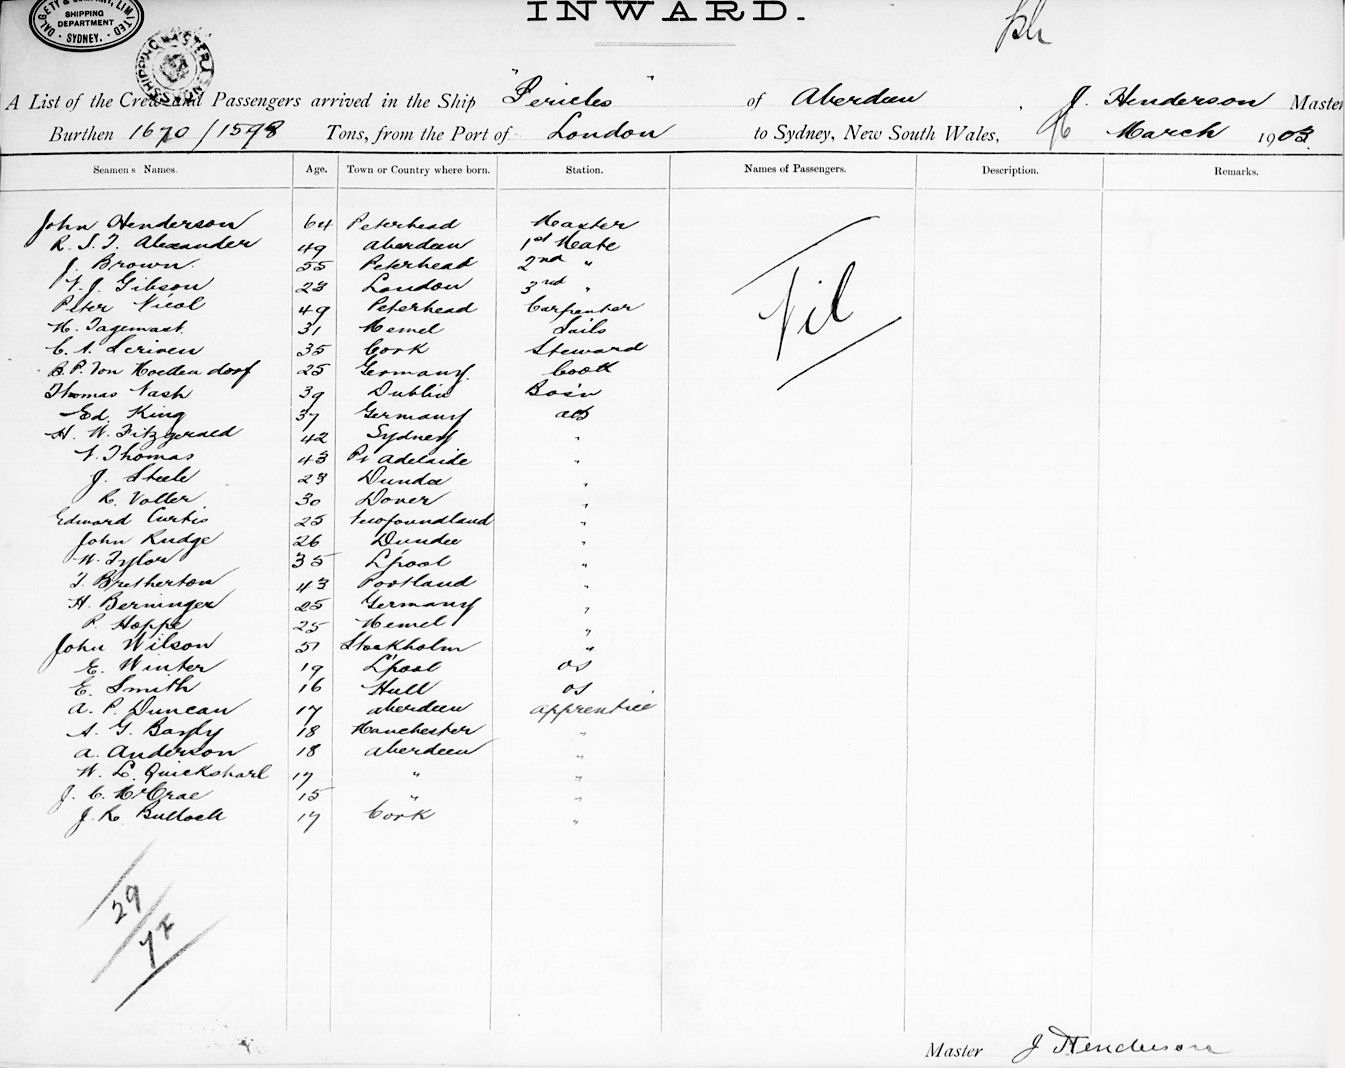 DALGETY & COMPANY, LIMITED
SHIPPING
DEPARTMENT
SYDNEY.
SHIPPING MASTER
INWARD.
A List of the Crew and Passengers arrived in the Ship "Pericles" of Aberdeen, J. Henderson Master
Burthen 1670/1598 Tons, from the Port of London to Sydney, New South Wales, March 1903
Seamen's Names. Age. Town or Country where born. Station. Names of Passengers. Description. Remarks.
John Henderson 64 Peterhead Master
R. S. T. Alexander 49 Aberdeen 1st Mate
J. Brown 55 Peterhead 2nd "
N. J. Gibson 23 London 3rd "
Nil
Peter Nicol 49 Peterhead Carpenter
M. Tagemast 31 Memel Sails
C. A. Scriven 35 Cork Steward
B. P. Von Hoellendorf 25 Germany Cook
Thomas Nash 39 Dublin Bos'n
Ed. King 37 Germany ab
H. W. Fitzgerald 42 Sydney "
N. Thomas 43 Pt Adelaide "
J. Steele 23 Dundee "
R. Volter 30 Dover "
Edward Curtis 25 Newfoundland "
John Rudge 26 Dundee "
W. Tylor 35 L'pool "
T. Bretherton 43 Portland "
H. Berninger 25 Germany "
P. Hoppe 25 Memel "
John Wilson 51 Stockholm "
E. Winter 19 L'pool OS
E. Smith 16 Hull OS
A. P. Duncan 17 Aberdeen apprentice
A. G. 18 Manchester "
A. Anderson 18 Aberdeen "
W. L. 17 " "
J. C. McCrae 15 " "
J. R. Bulloch 17 Cork "
29
Master J Henderson